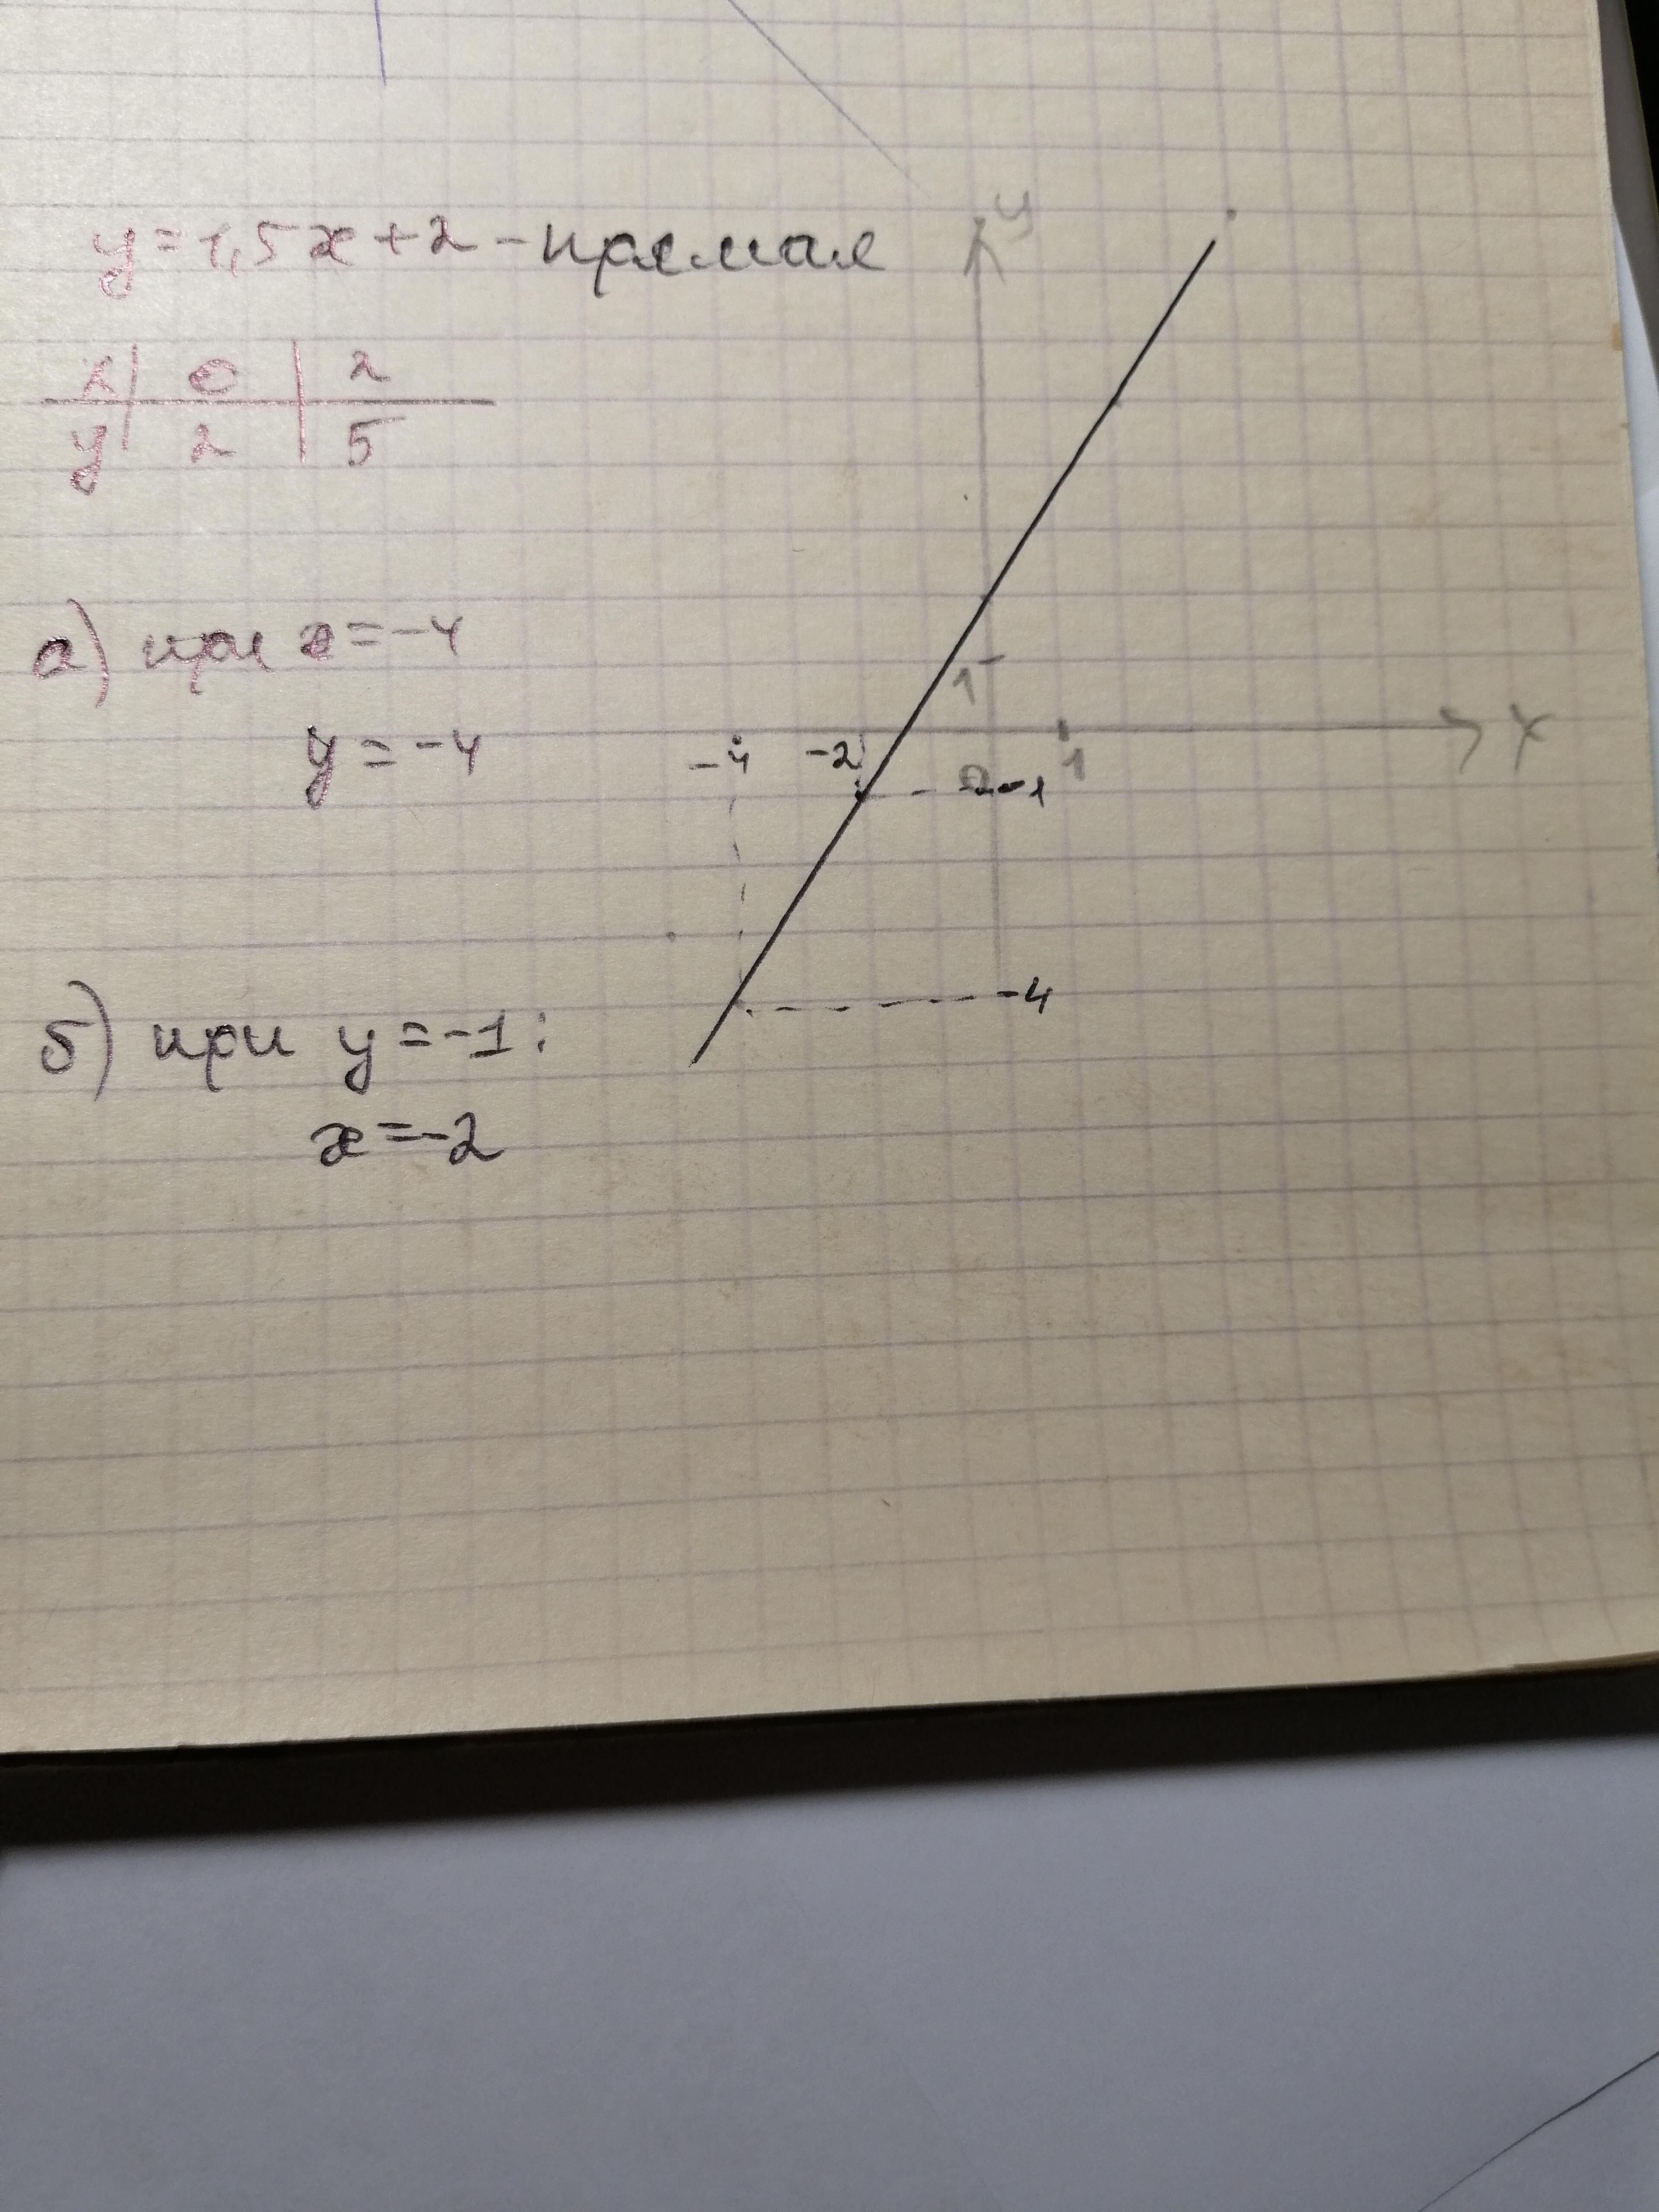 y = 1,5x + 2 - прямая
x | 0 | 2
y | 2 | 5
а) при x = -4
y = -4
б) при y = -1:
x = -2
y
1
-4 -2 1 x
-1
-4